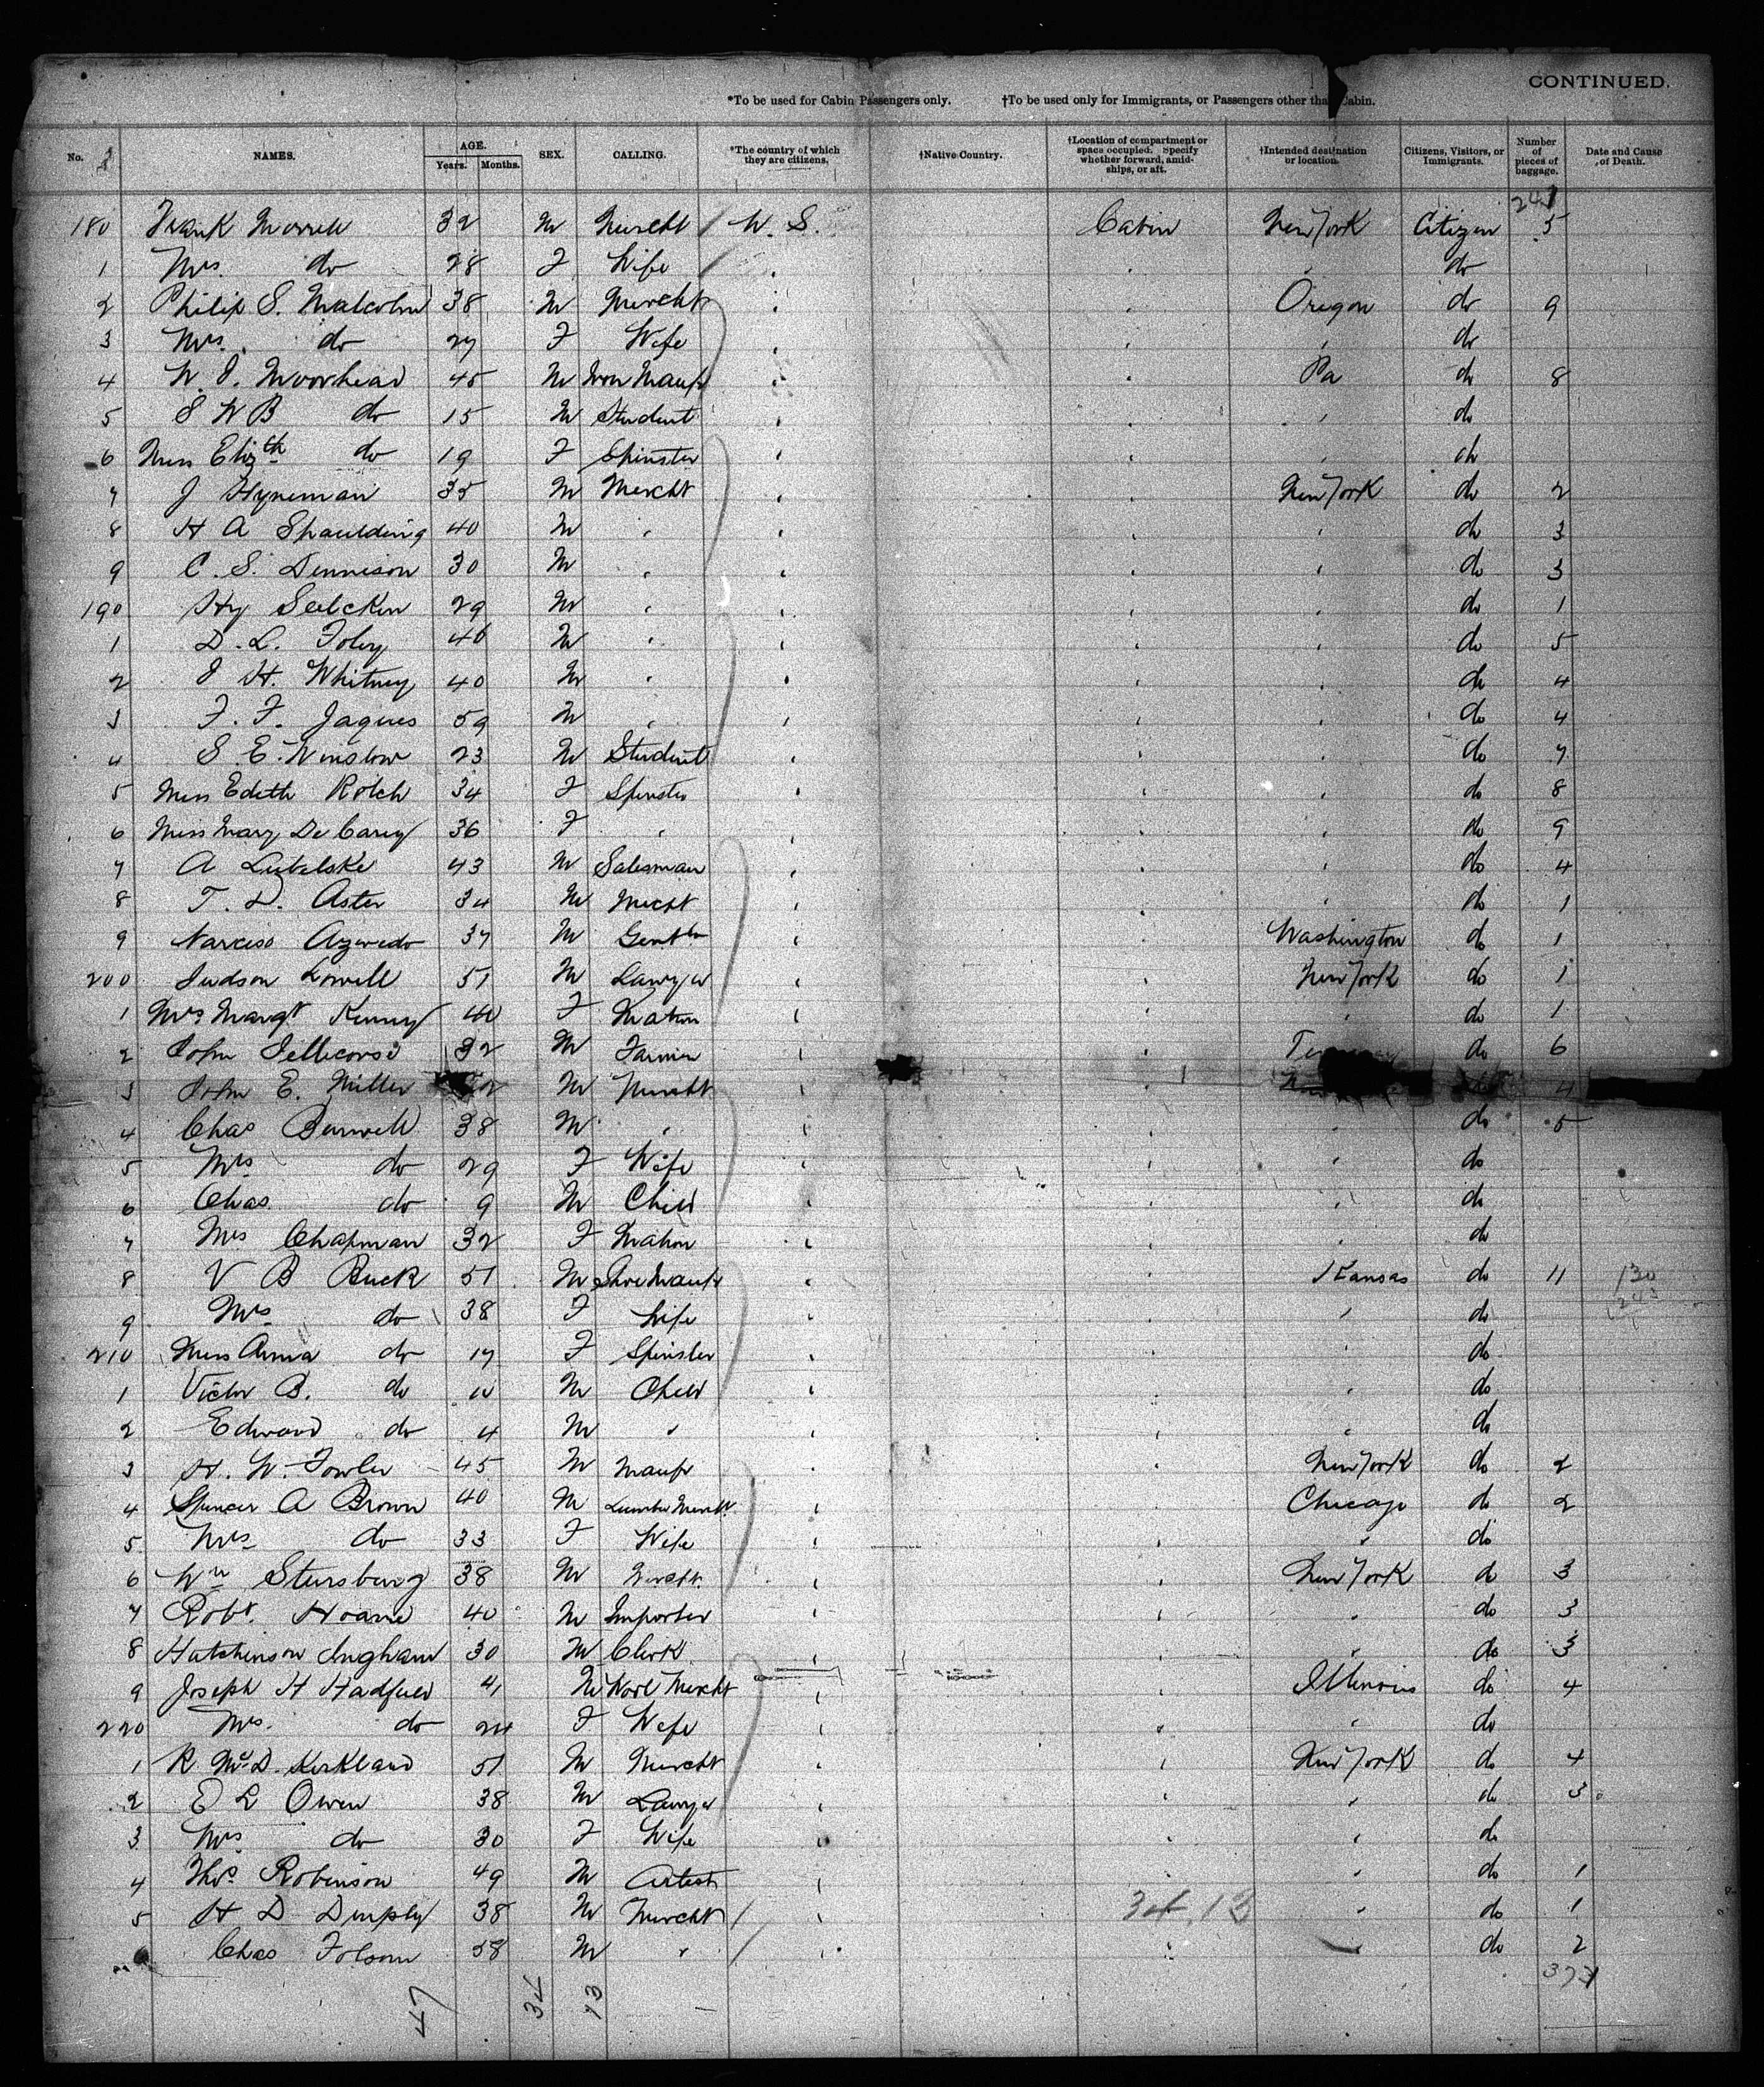 CONTINUED.
*To be used for Cabin Passengers only. †To be used only for Immigrants, or Passengers other than Cabin.
No. NAMES. AGE. Years. Months. SEX. CALLING. *The country of which they are citizens. †Native Country. †Location of compartment or space occupied. Specify whether forward, amidships, or aft. †Intended destination or location. Citizens, Visitors, or Immigrants. Number of pieces of baggage. Date and Cause of Death.
241
180 Frank Morrell 32 M Mercht U. S. Cabin New York Citizen 5
1 Mrs. do 28 F Wife " " " do
2 Philip S. Malcolm 38 M Mercht " " Oregon do 9
3 Mrs. do 27 F Wife " " " do
4 W. J. Moorhead 45 M Iron Maufr " " Pa do 8
5 S W B do 15 M Student " " " do
6 Miss Elizth do 19 F Spinster " " " do
7 J Hyneman 35 M Mercht " " New York do 2
8 H A Shaulding 40 M " " " " do 3
9 C. S. Dennison 30 M " " " " do 3
190 Hy Seelcken 29 M " " " " do 1
1 D. L. Foley 46 M " " " " do 5
2 J H. Whitney 40 M " " " " do 4
3 F. F. Jaques 59 M " " " " do 4
4 S. E. Winslow 23 M Student " " " do 7
5 Miss Edith Rotch 34 F Spinster " " " do 8
6 Miss Mary De Carey 36 F " " " " do 9
7 A Lubelske 43 M Salesman " " " do 4
8 T. D. Aster 34 M Mercht " " " do 1
9 Narciso Azevedo 37 M Gentln " " Washington do 1
200 Judson Lowell 51 M Lawyer " " New York do 1
1 Mrs Margt Kenny 40 F Matron " " " do 1
2 John Jellicorse 32 M Farmer " " do 6
3 John E. Miller M Mercht 4
4 Chas Burwell 38 M " " " " do 5
5 Mrs do 29 F Wife " " " do
6 Chas. do 9 M Child " " " do
7 Mrs Chapman 32 F Matron " " " do
8 V B Buck 51 M Shoe Maufr " " Kansas do 11 130
9 Mrs do 38 F Wife " " " do
210 Miss Anna do 17 F Spinster " " " do
1 Victor B. do 10 M Child " " " do
2 Edward do 4 M " " " " do
3 H. W. Fowler 45 M Maufr " " New York do 2
4 Spencer A Brown 40 M Lumber Mercht. " " Chicago do 2
5 Mrs do 33 F Wife " " " do
6 Wm Stursburg 38 M Mercht. " " New York do 3
7 Robt. Hoare 40 M Importer " " " do 3
8 Hutchinson Ingham 30 M Clerk " " " do 3
9 Joseph H Hadfield 41 M Wool Mercht " " Illinois do 4
220 Mrs. do 24 F Wife " " " do
1 R McD. Kirkland 51 M Mercht " " New York do 4
2 E L Owen 38 M Lawyer " " " do 3
3 Mrs do 30 F Wife " " " do
4 Thos. Robinson 49 M Artist " " " do 1
5 H D 38 M Mercht " 34.13 " do 1
Chas Folsom 58 M " " " " do 2
373
47 34 13